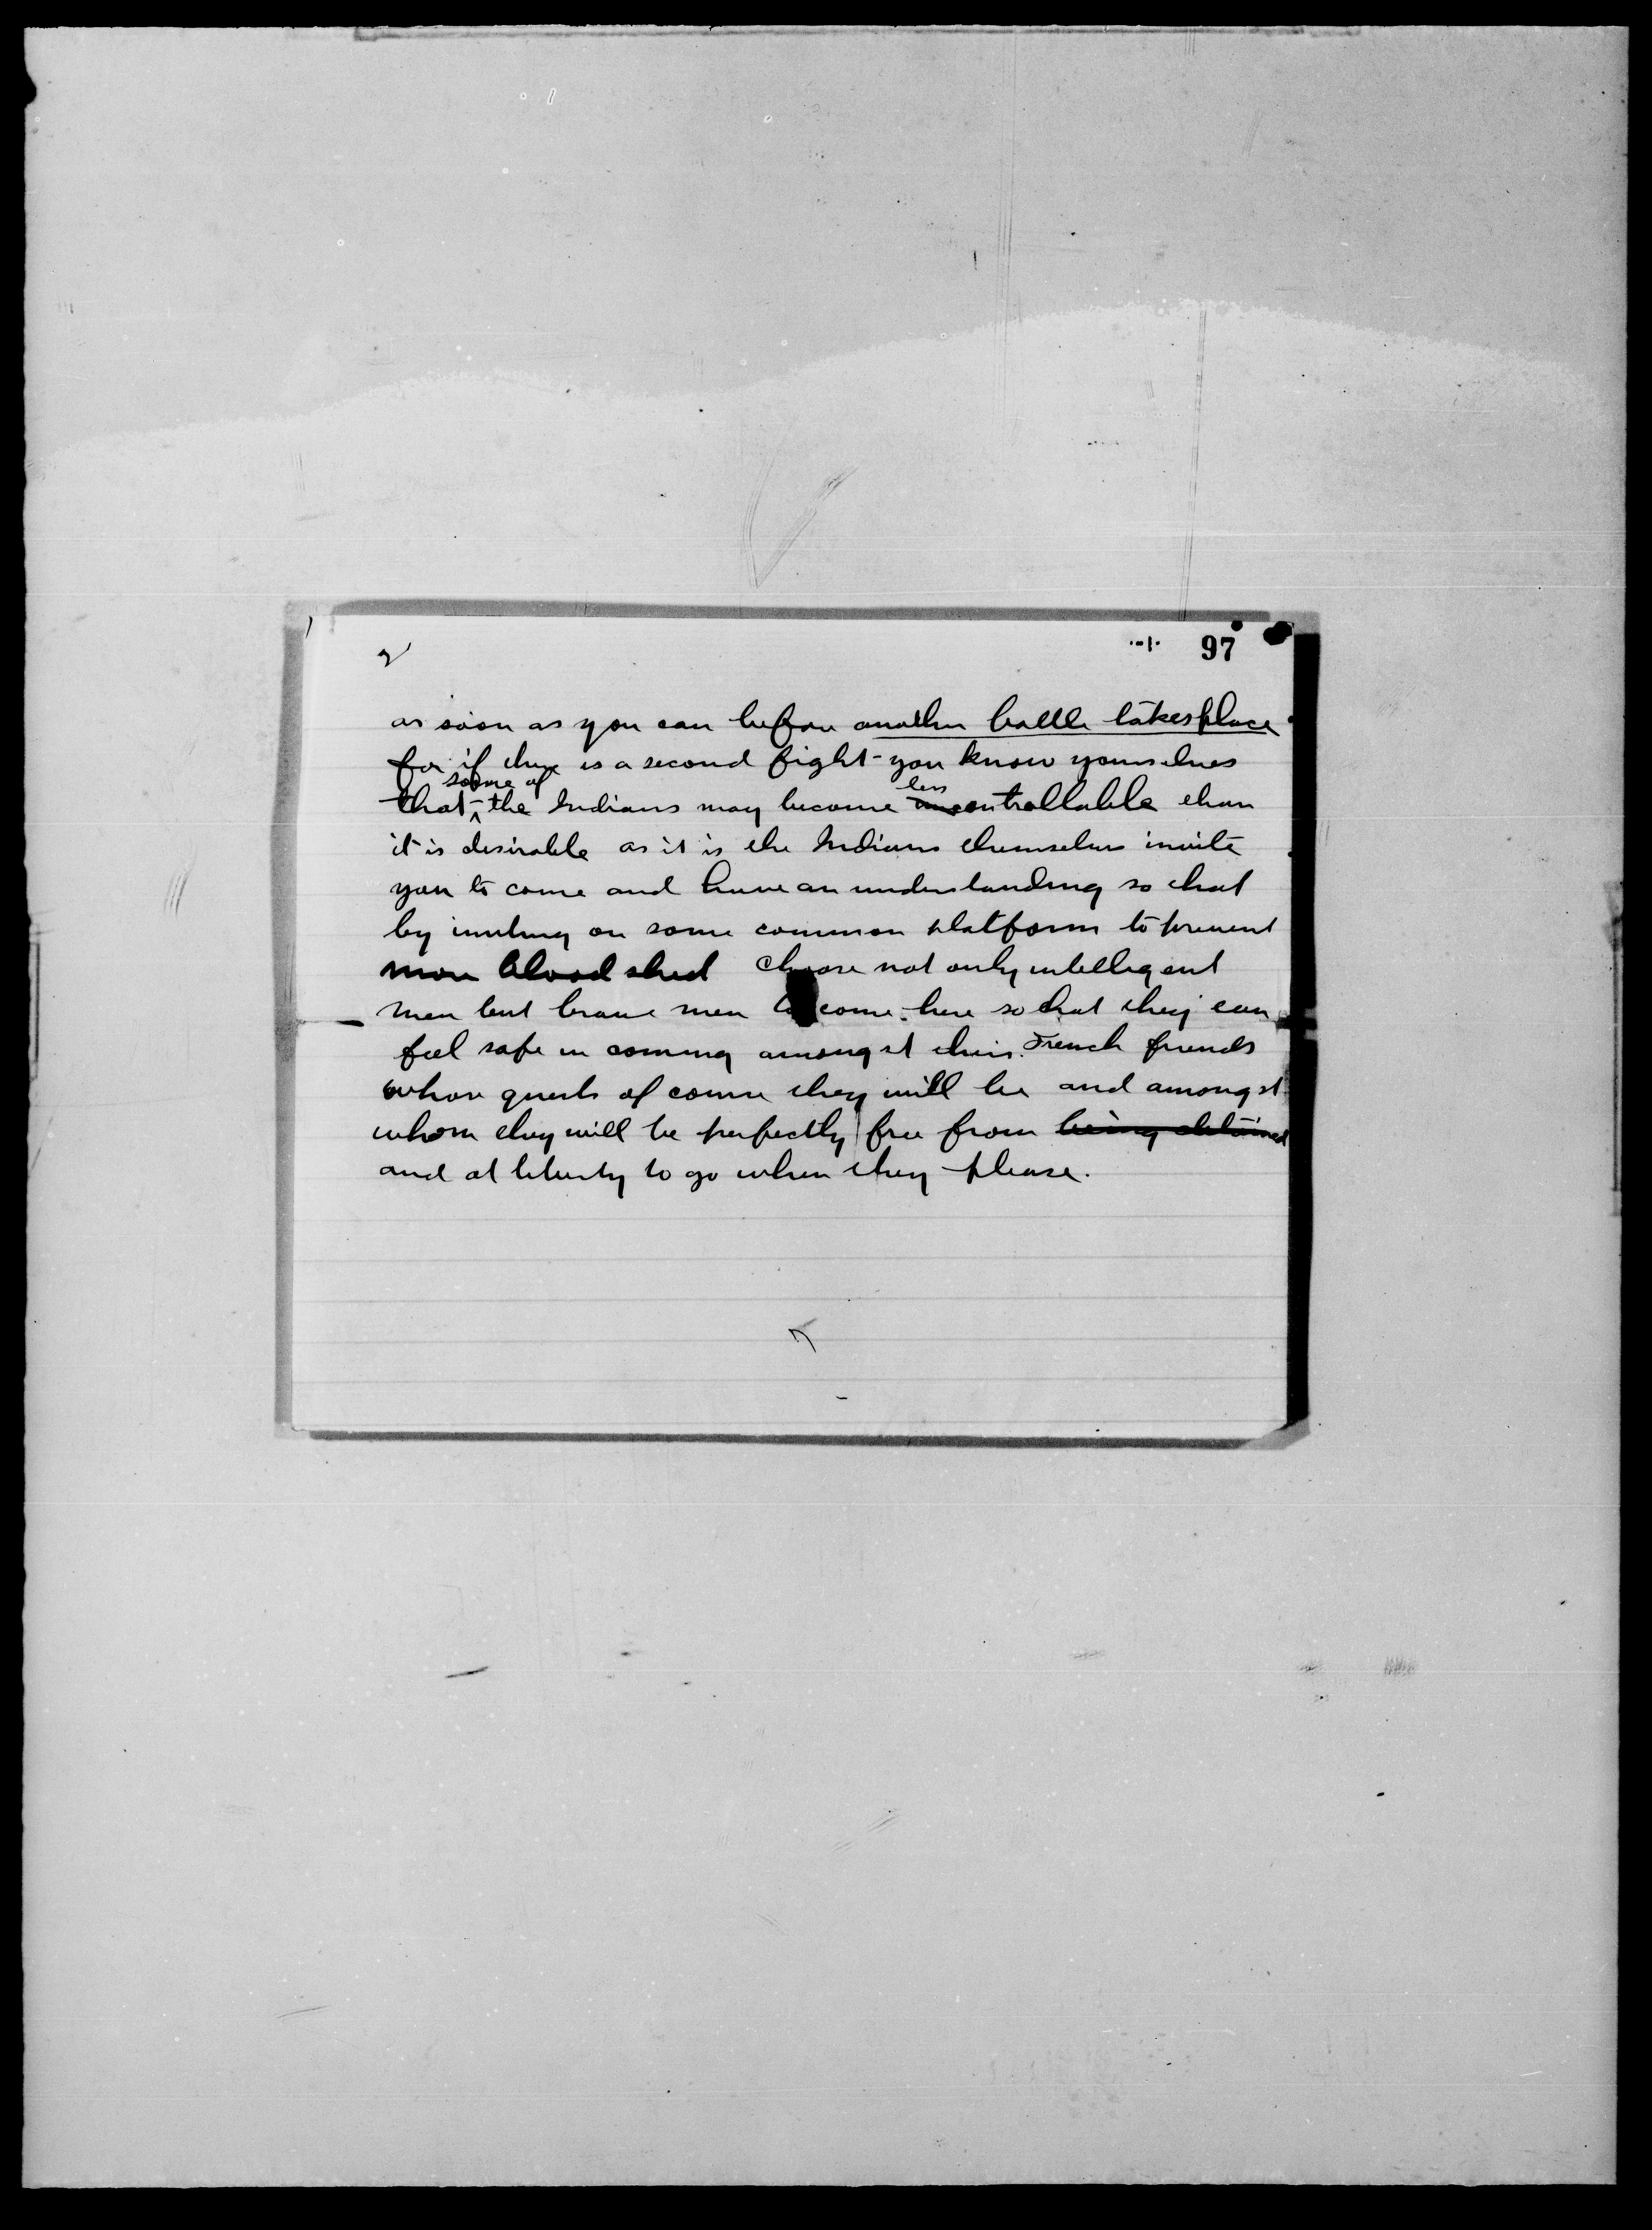 2
97
as soon as you can before another battle takes place
for if there is a second fight - you know yourselves
some of
less
that the Indians may become uncontrollable than
it is desirable as it is the Indians themselves invite
you to come and have an understanding so that
by inviting on some common platform to prevent
more blood shed Choose not only intelligent
men but brave men to come here so that they can
feel safe in coming amongst their French friends
whose guests of course they will be and amongst
whom they will be perfectly free from being detained
and at liberty to go when they please.